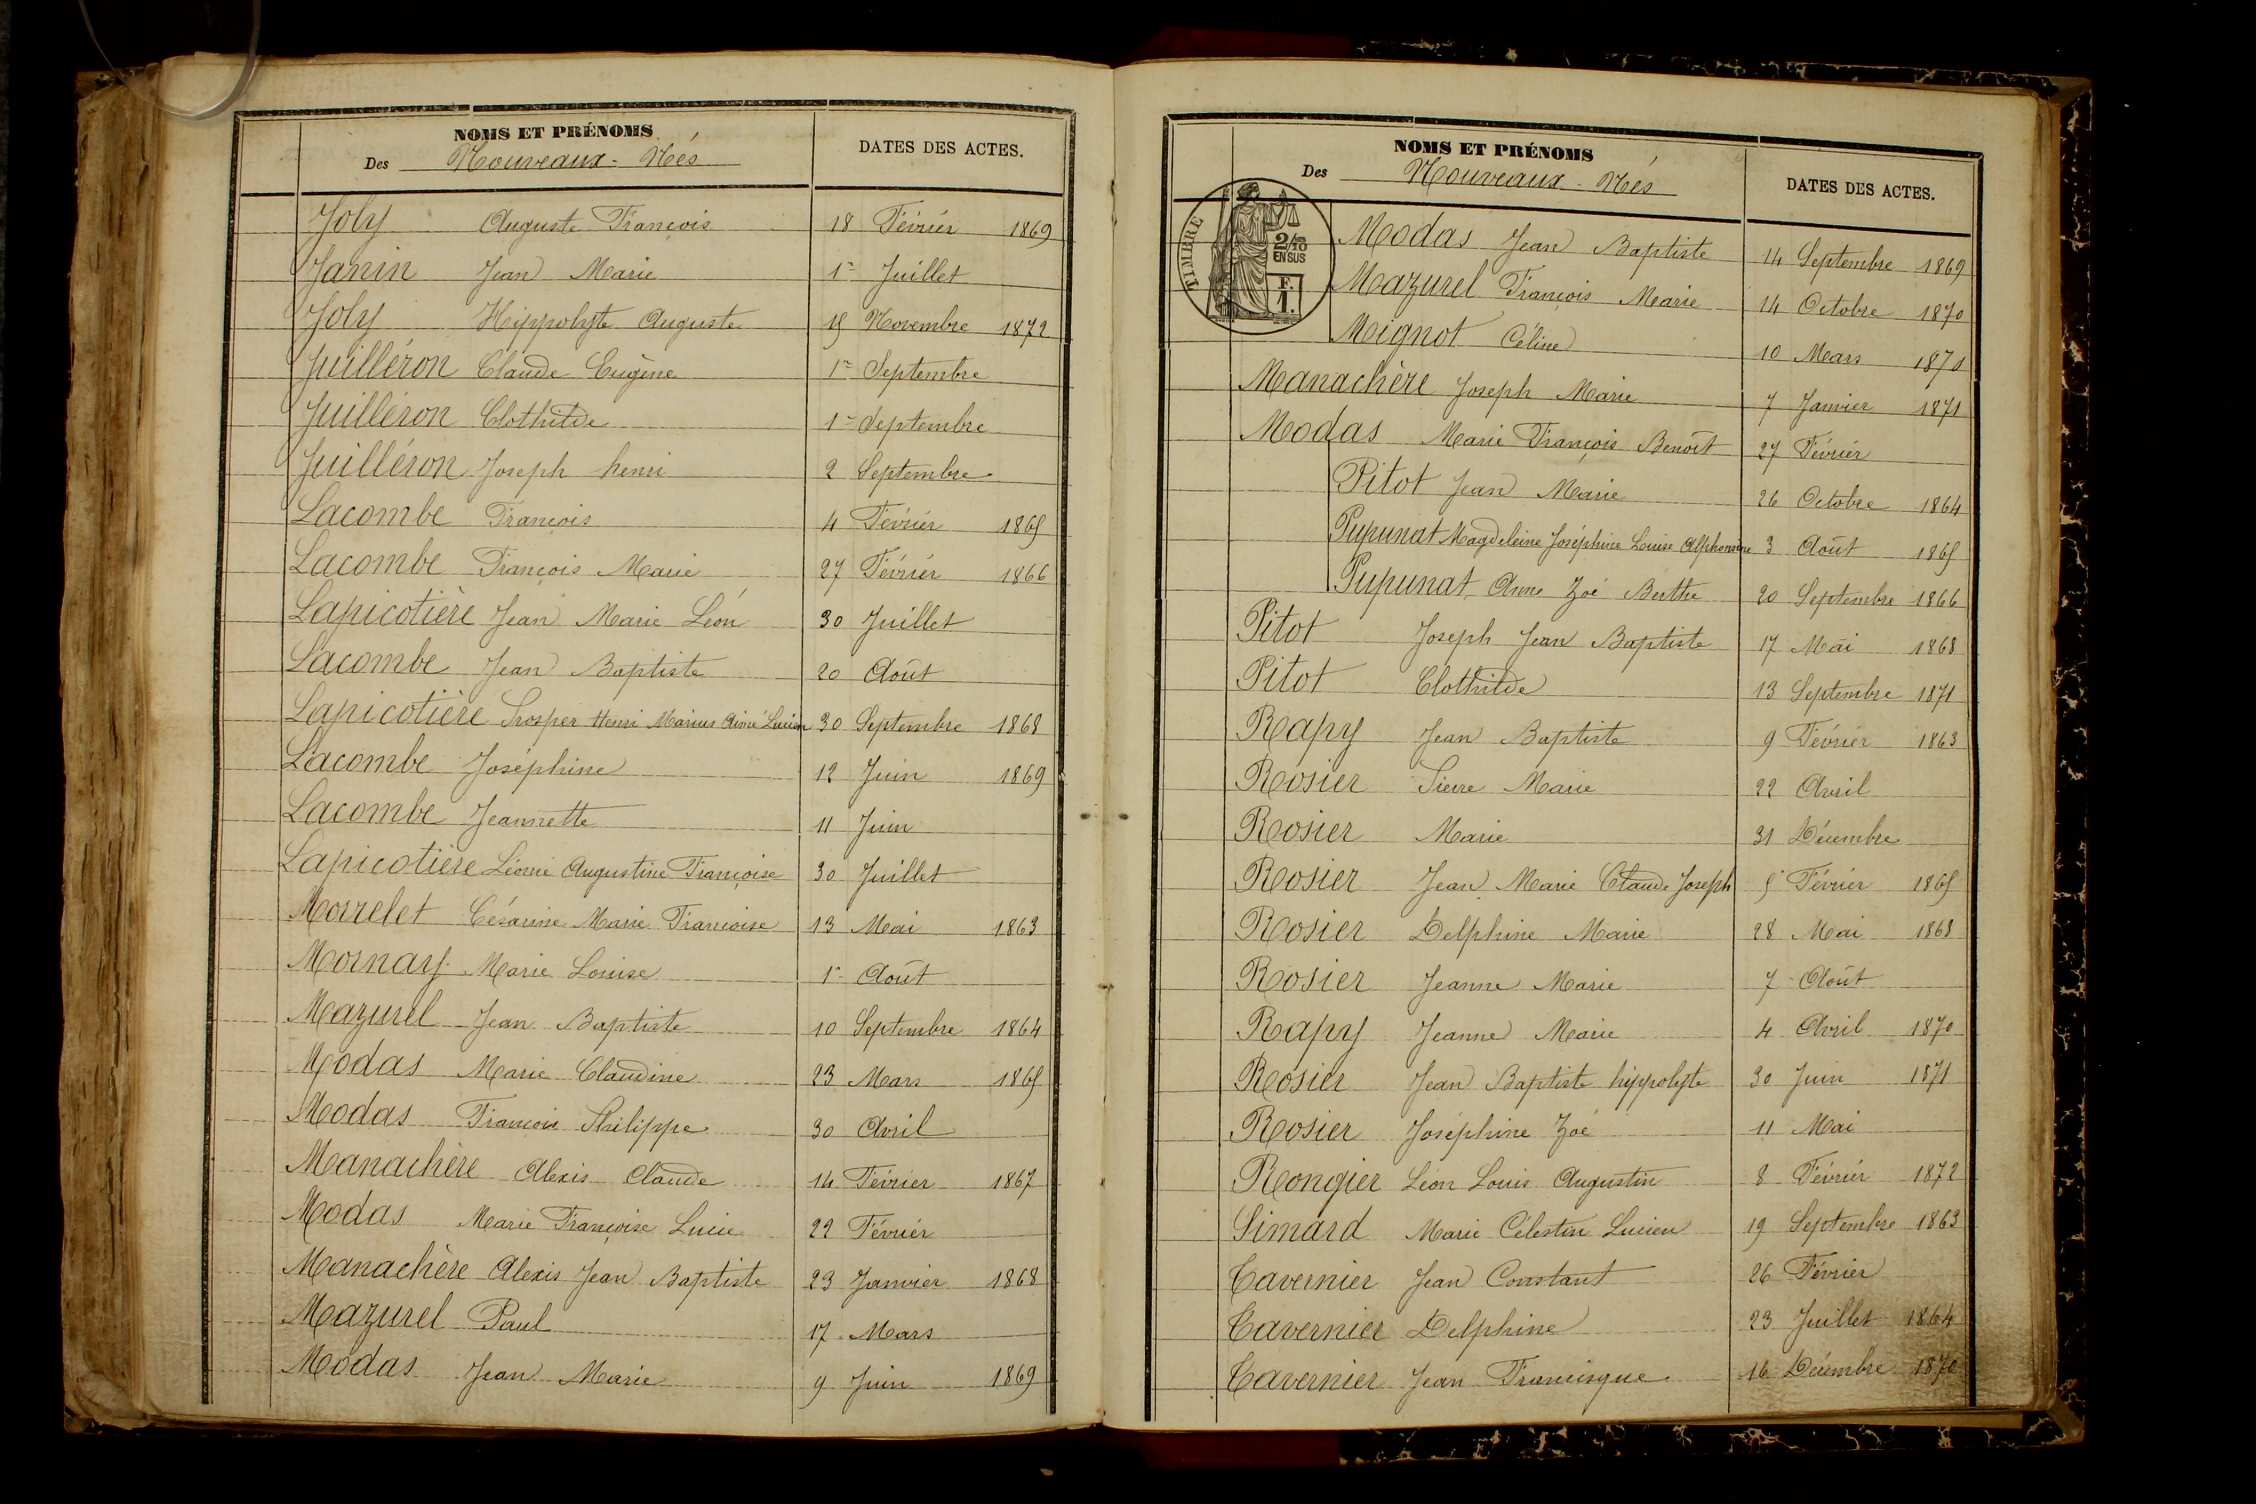 NOMS ET PRÉNOMS
Des Nouveaux-Nés
DATES DES ACTES.
Joly Auguste François 18 Février 1869
Janin Jean Marie 1er Juillet
Joly Hippolyte Auguste 15 Novembre 1872
Juilléron Claude Eugène 1er Septembre
Juilléron Clothilde 1er Septembre
Juilléron Joseph henri 2 Septembre
Lacombe François 4 Février 1865
Lacombe François Marie 27 Février 1866
Lapicotière Jean Marie Léon 30 Juillet
Lacombe Jean Baptiste 20 Août
Lapicotière Prosper Henri Marius Aimé Lucien 30 Septembre 1868
Lacombe Joséphine 12 Juin 1869
Lacombe Jeannette 11 Juin
Lapicotière Léonie Augustine Françoise 30 Juillet
Morrelet Césarine Marie Françoise 13 Mai 1863
Mornay Marie Louise 1er Août
Mazurel Jean Baptiste 10 Septembre 1864
Modas Marie Claudine 23 Mars 1865
Modas François Philippe 30 Avril
Manachère Alexis Claude 14 Février 1867
Modas Marie Françoise Lucie 22 Février
Manachère Alexis Jean Baptiste 23 Janvier 1868
Mazurel Paul 17 Mars
Modas Jean Marie 9 Juin 1869
NOMS ET PRÉNOMS
Des Nouveaux-Nés
DATES DES ACTES.
TIMBRE
2/10
EN SUS
F.
1.
Modas Jean Baptiste 14 Septembre 1869
Mazurel François Marie 14 Octobre 1870
Mignot Céline 10 Mars 1870
Manachère Joseph Marie 7 Janvier 1871
Modas Marie François Benoît 27 Février
Pitot Jean Marie 26 Octobre 1864
Pupunat Magdeleine Joséphine Louise Alphonsine 3 Août 1865
Pupunat Anne Zoé Berthe 20 Septembre 1866
Pitot Joseph Jean Baptiste 17 Mai 1868
Pitot Clothilde 13 Septembre 1871
Rapy Jean Baptiste 9 Février 1863
Rosier Pierre Marie 22 Avril
Rosier Marie 31 Décembre
Rosier Jean Marie Claude Joseph 5 Février 1865
Rosier Delphine Marie 28 Mai 1868
Rosier Jeanne Marie 7 Août
Rapy Jeanne Marie 4 Avril 1870
Rosier Jean Baptiste hippolyte 30 Juin 1871
Rosier Joséphine Zoé 11 Mai
Rongier Léon Louis Augustin 8 Février 1872
Simard Marie Célestin Lucien 19 Septembre 1863
Tavernier Jean Constant 26 Février
Tavernier Delphine 23 Juillet 1864
Tavernier Jean Francisque 16 Décembre 1870